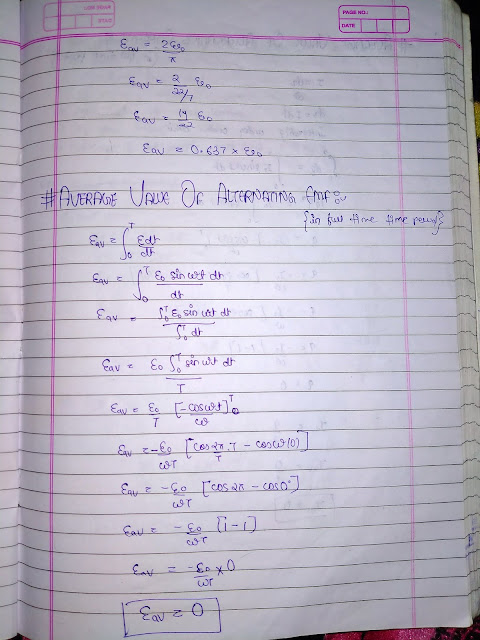 PAGE NO.:
DATE
εav = 2ε0/π
εav = 2/(22/7) ε0
εav = 14/22 ε0
εav = 0.637 × ε0
# AVERAGE VALUE OF ALTERNATING EMF:-
{in full time time period}
εav = ∫₀ᵀ εdt/dt
εav = ∫₀ᵀ ε0 sin ωt dt/dt
εav = ∫₀ᵀ ε0 sin ωt dt/∫₀ᵀ dt
εav = ε0 ∫₀ᵀ sin ωt dt/T
εav = ε0/T [-cos ωt/ω]ᵀ₀
εav = -ε0/ωT [cos 2π/T . T - cos ω(0)]
εav = -ε0/ωT [cos 2π - cos 0°]
εav = -ε0/ωT [1-1]
εav = -ε0/ωT × 0
εav = 0